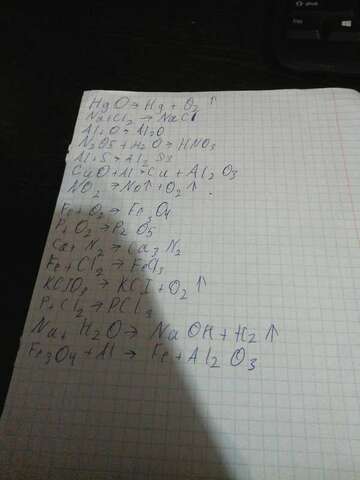 HgO → Hg + O2 ↑
Na + Cl2 → NaCl
Al + O → Al2O
N2O5 + H2O → HNO3
Al + S → Al2 S3
CuO + Al → Cu + Al2 O3
NO2 → No↑ + O2 ↑
Fe + O2 → Fe3O4
P + O2 → P2 O5
Ca + N2 → Ca3 N2
Fe + Cl2 → FeCl3
KClO3 → KCl + O2 ↑
P + Cl2 → PCl3
Na + H2O → NaOH + H2 ↑
Fe3O4 + Al → Fe + Al2 O3